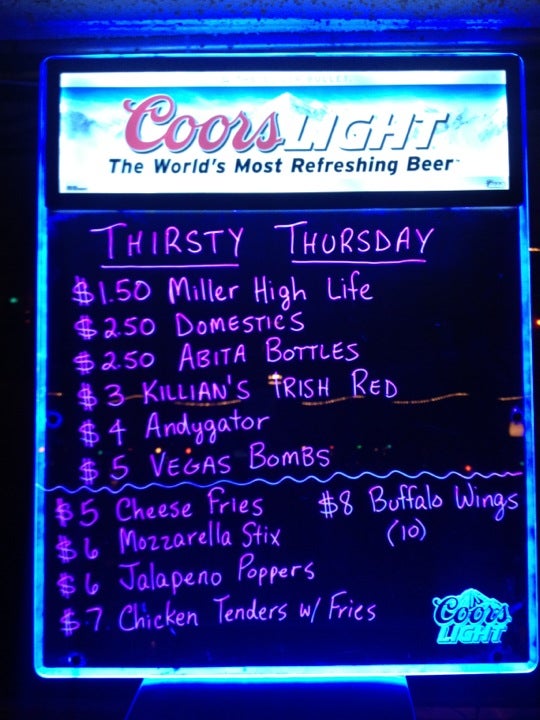 Coors LIGHT
The World's Most Refreshing Beer
THIRSTY THURSDAY
$1.50 Miller High Life
$2.50 DOMESTICS
$2.50 ABITA BOTTLES
$3 KILLIAN'S IRISH RED
$4 Andygator
$5 VEGAS BOMBS
$5 Cheese Fries
$6 Mozzarella Stix
$6 Jalapeno Poppers
$7 Chicken Tenders w/ Fries
$8 Buffalo Wings
(10)
Coors
LIGHT